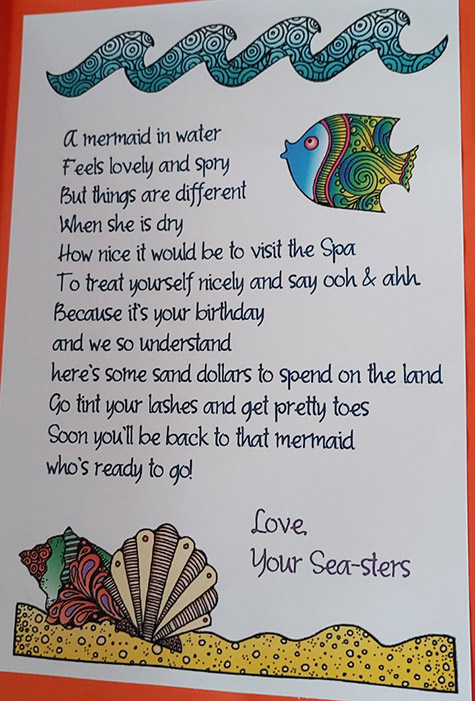 A mermaid in water
Feels lovely and spry
But things are different
When she is dry
How nice it would be to visit the Spa
To treat yourself nicely and say ooh & ahh.
Because it's your birthday
and we so understand
here's some sand dollars to spend on the land
Go tint your lashes and get pretty toes
Soon you'll be back to that mermaid
who's ready to go!
Love,
Your Sea-sters